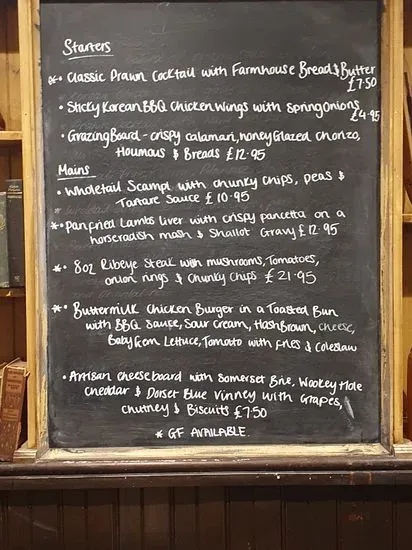 Starters
*• Classic Prawn Cocktail with Farmhouse Bread & Butter
£7.50
• Sticky Korean BBQ Chicken Wings with Spring Onions
£4.95
• Grazing Board - crispy calamari, honey Glazed chorizo,
Houmous & Breads £12.95
Mains
• Wholetail Scampi with chunky chips, peas &
Tartare Sauce £10.95
*• Pan fried Lambs liver with crispy pancetta on a
horseradish mash & Shallot Gravy £12.95
*• 8oz Ribeye Steak with mushrooms, Tomatoes,
onion rings & Chunky Chips £21.95
*• Buttermilk Chicken Burger in a Toasted Bun
with BBQ Sauce, Sour Cream, Hash Brown, cheese,
Baby Gem Lettuce, Tomato with fries & Coleslaw
• Artisan cheese board with Somerset Brie, Wookey Hole
Cheddar & Dorset Blue Vinney with Grapes,
chutney & Biscuits £7.50
* GF AVAILABLE.